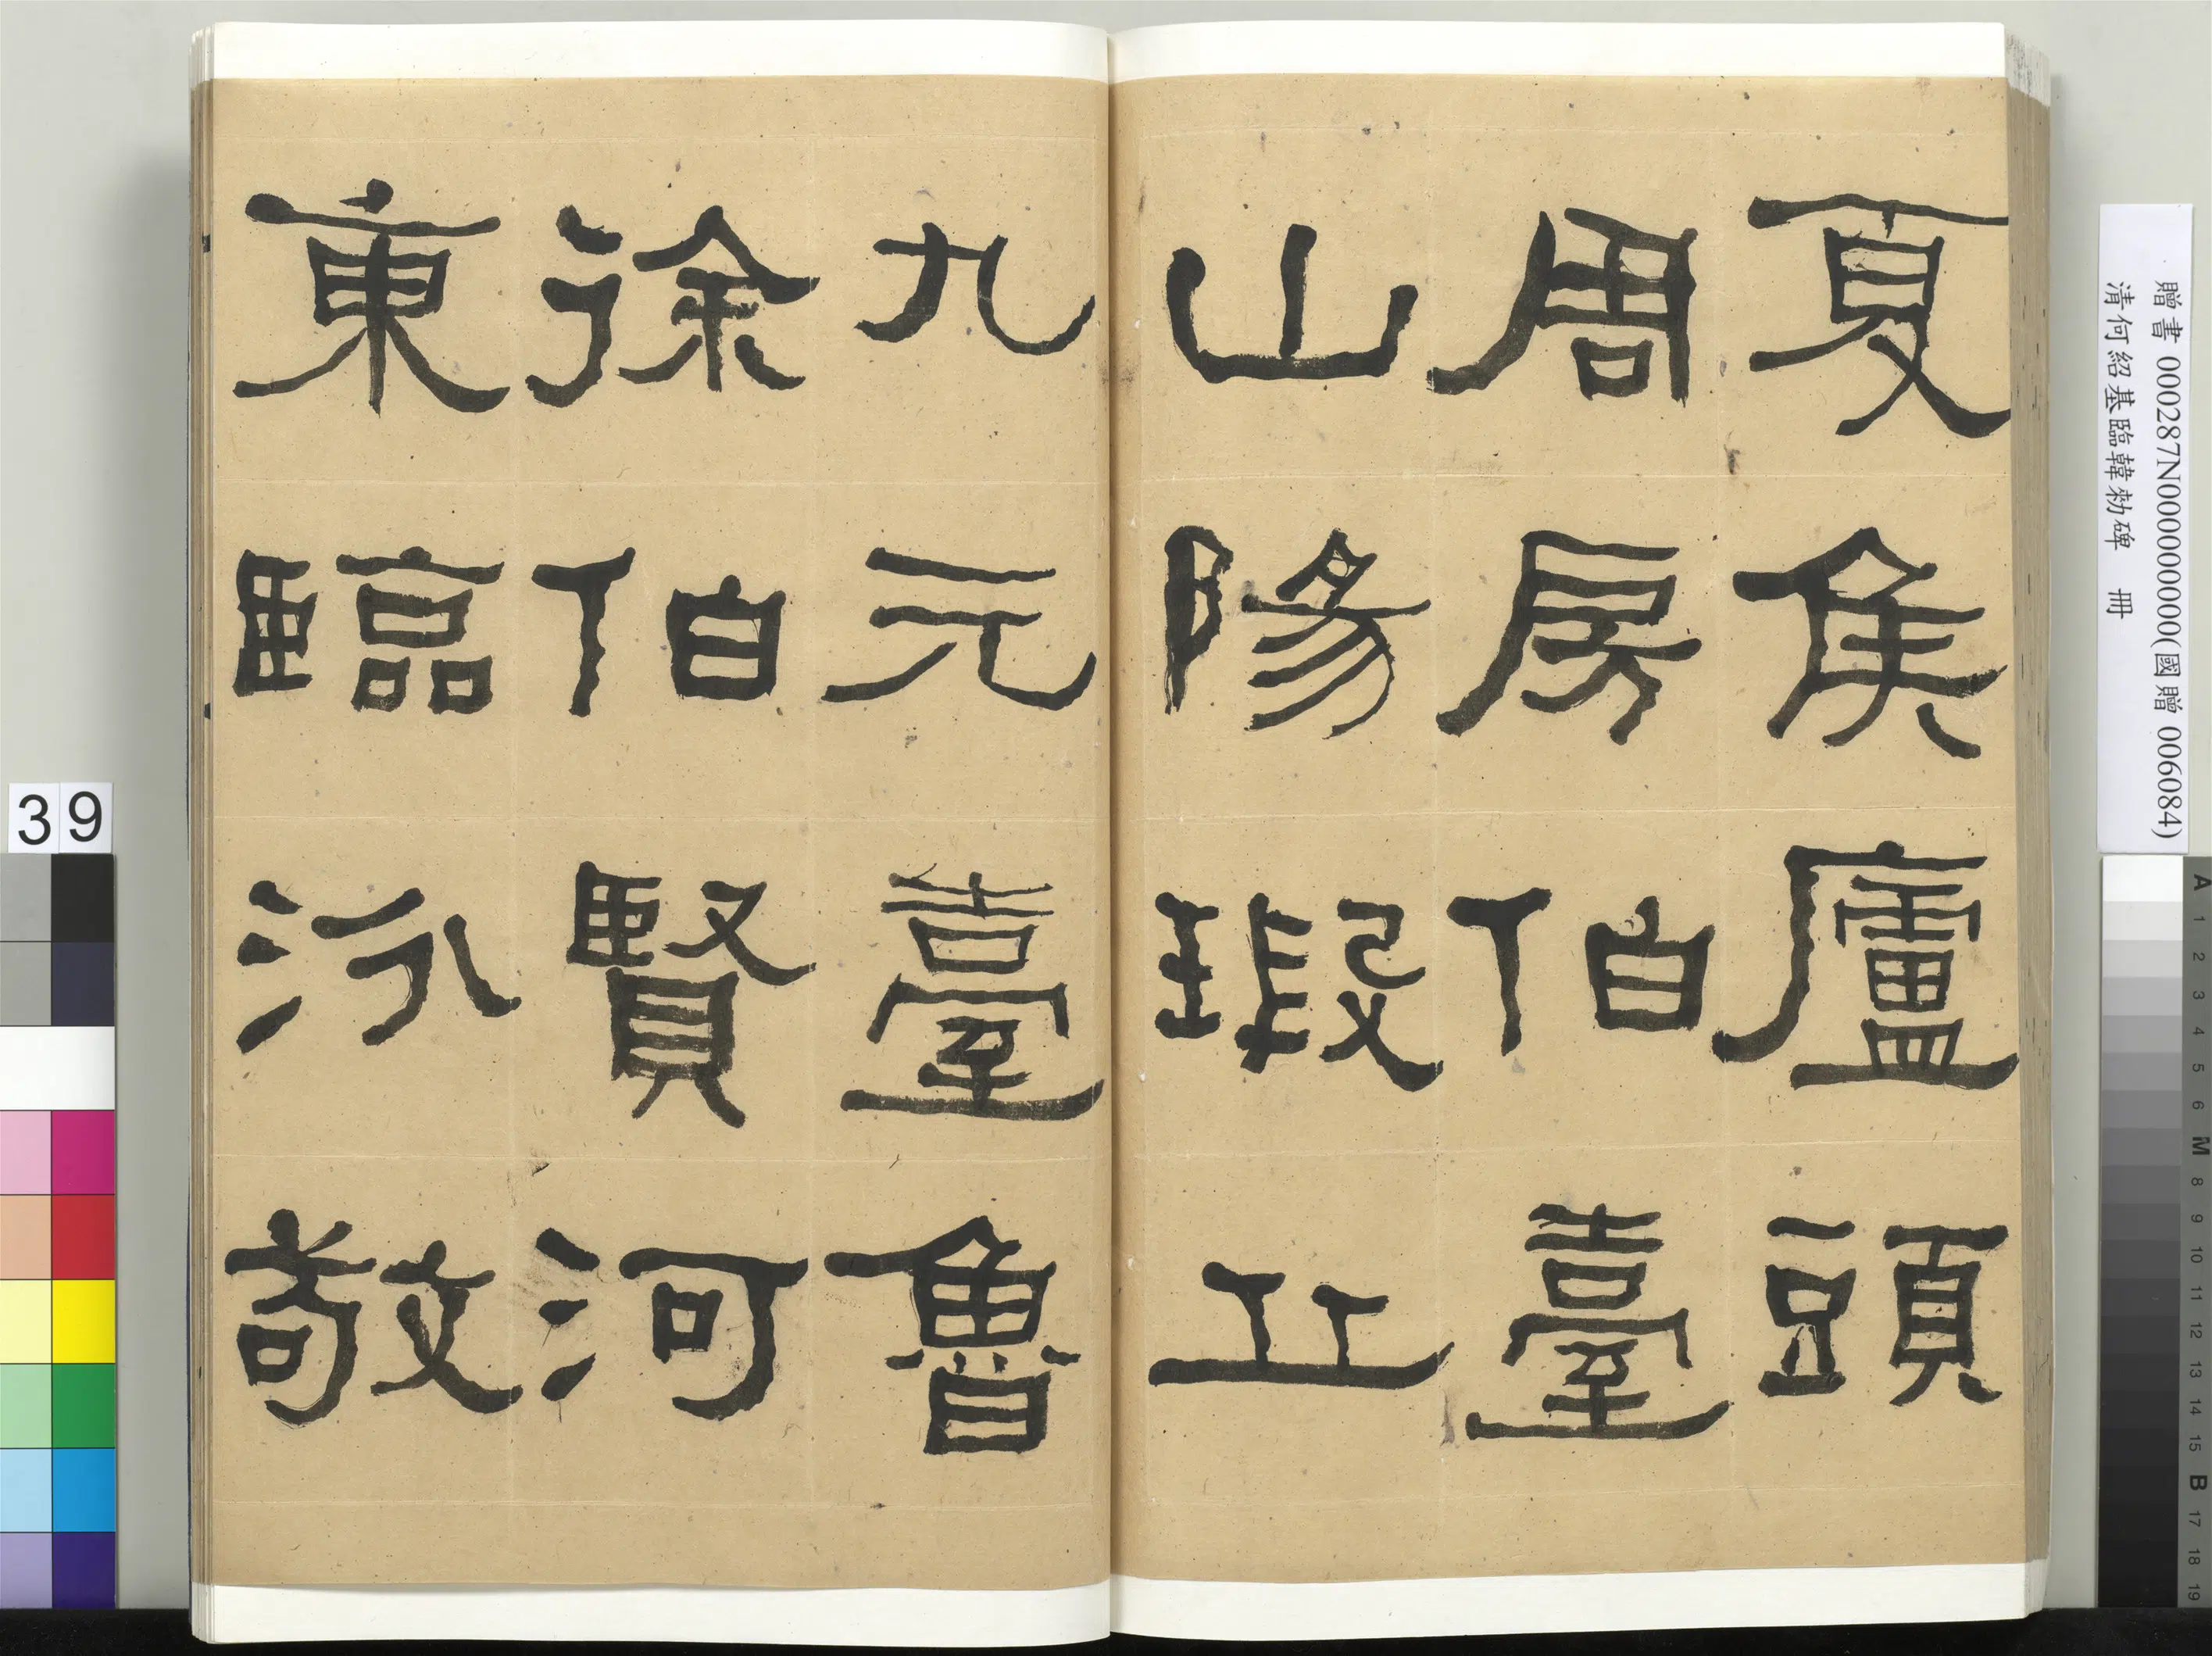 夏侯廬頭
周房伯臺
山陽瑕丘
九元臺魯
徐伯賢河
東臨汾敬
贈書 000287N000000000(國贈 006084)
清何紹基臨韓勑碑 冊
39
A 1 2 3 4 5 6 M 8 9 10 11 12 13 14 15 B 17 18 19